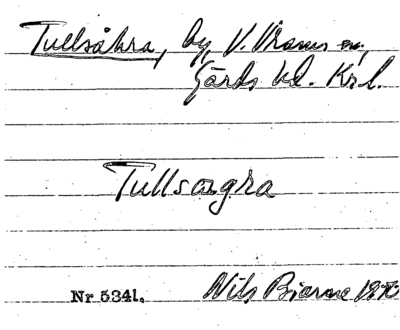 Tullsåkra, by, V. Vrams sn,
Gärds hd. Krl.
Tullsagra
Nr 5341.
Nils Bjarne